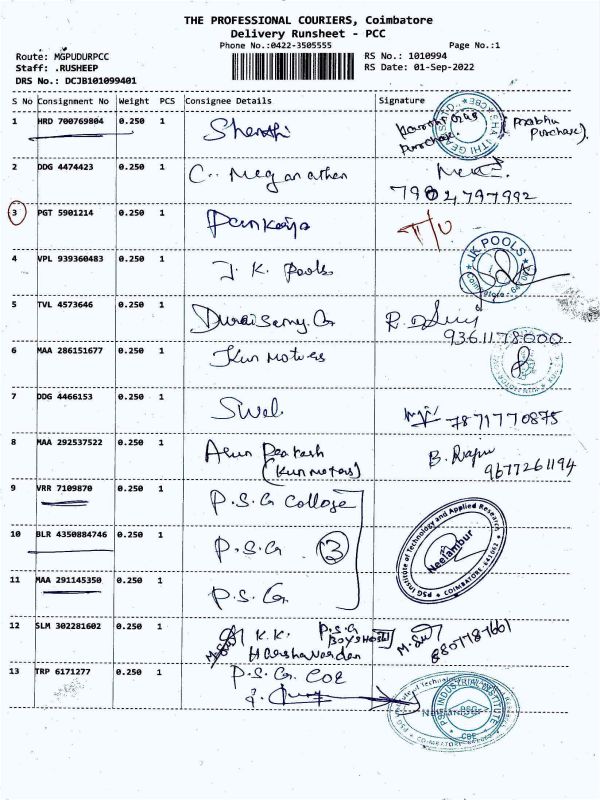 THE PROFESSIONAL COURIERS, Coimbatore
Delivery Runsheet - PCC
Phone No.:0422-3505555 Page No.:1
Route: MGPUDURPCC RS No.: 1010994
Staff: .RUSHEEP RS Date: 01-Sep-2022
DRS No.: DCJB101099401
S No Consignment No Weight PCS Consignee Details Signature
1 HRD 700769804 0.250 1 (Prabhu
Purchase. Purchase).
2 DDG 4474423 0.250 1 C.. Meganathan
7904797992
3 PGT 5901214 0.250 1 Pankaja
4 VPL 939360483 0.250 1 J.K. Pools JK POOLS
5 TVL 4573646 0.250 1 Duraisamy.G
9361178000
6 MAA 286151677 0.250 1 Kun Motors
7 DDG 4466153 0.250 1 7871770875
8 MAA 292537522 0.250 1 Arun Prakash B.
(Kun motors) 9677261194
9 VRR 7109870 0.250 1 P.S.G College
10 BLR 4350884746 0.250 1 P.S.G 3 PSG Institute of Technology and Applied Research
Neelambur
COIMBATORE 641 062
11 MAA 291145350 0.250 1 P.S.G.
12 SLM 302281602 0.250 1 K.K. P.S.G
Harshavardan
13 TRP 6171277 0.250 1 P.S.G. COE
PSG INDUSTRIAL INSTITUTE
PSG
CBE